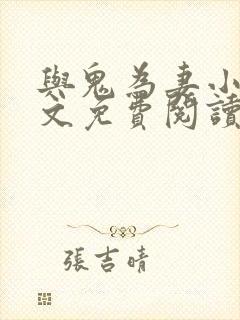 與鬼為妻小
文免費閱讀
張吉晴